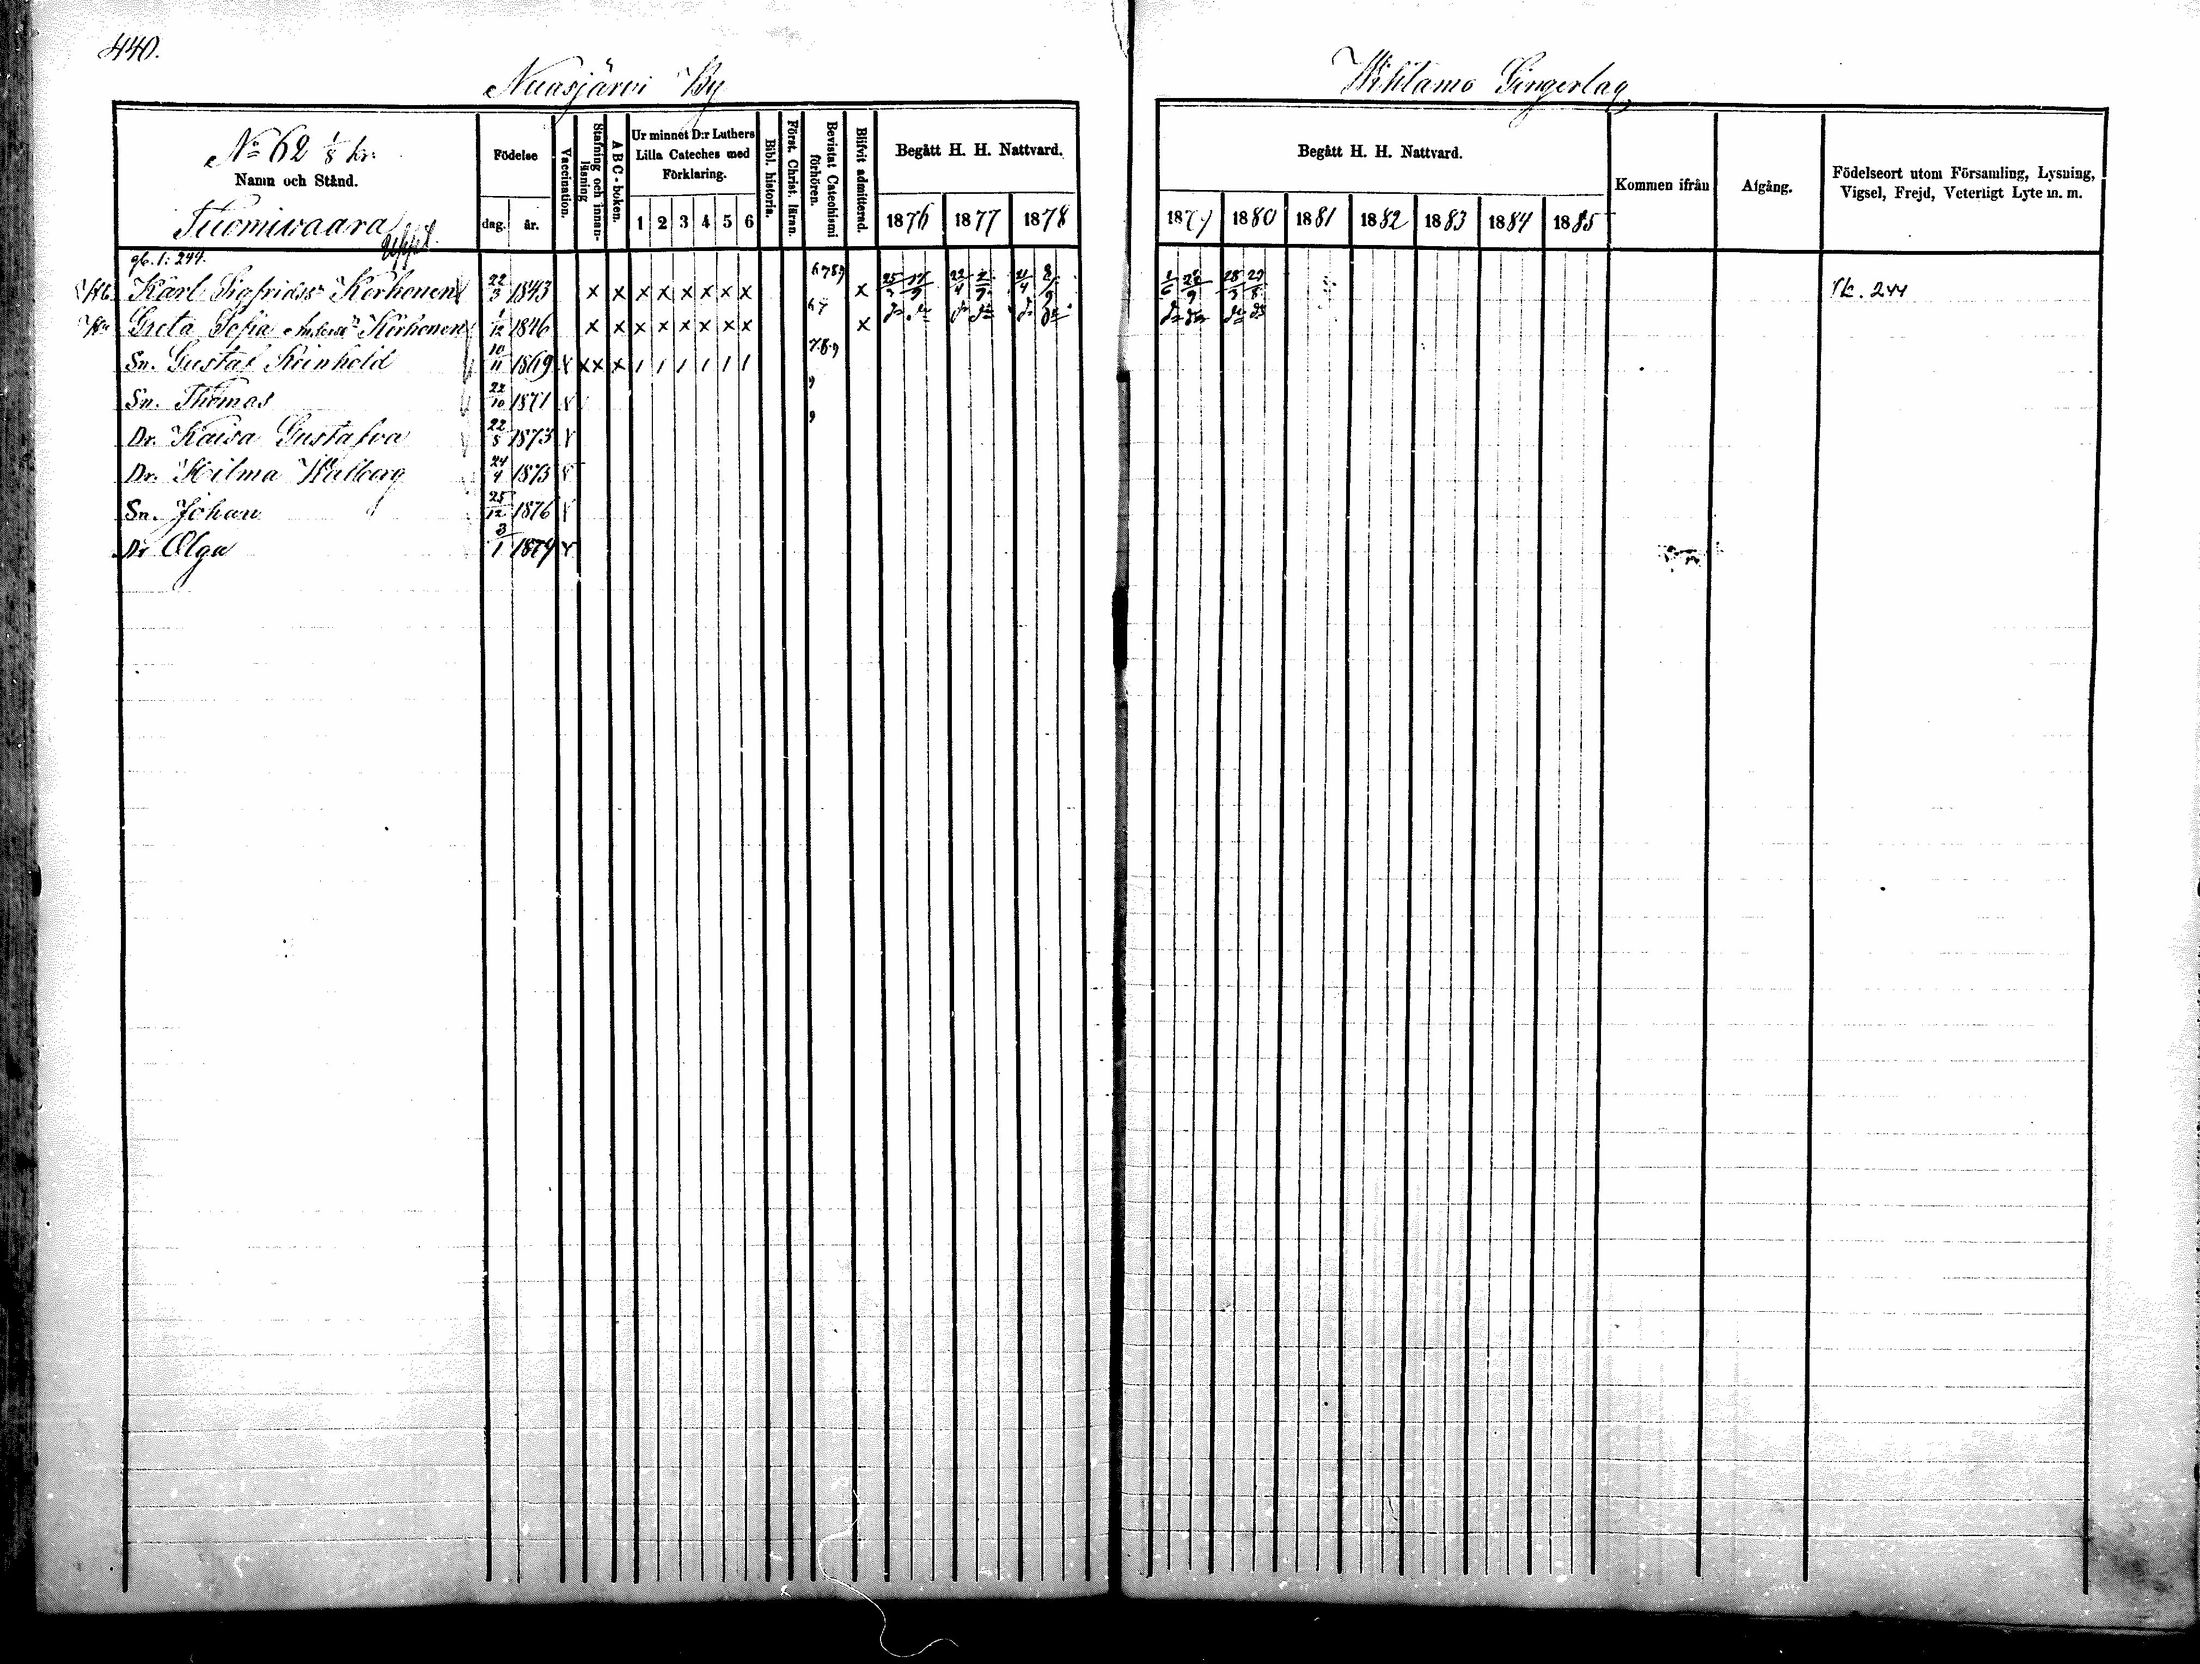 440.
Nuasjärvi By
Wihtamo Gingerlag
No 62 1/8 kr.
Namn och Stånd.
Tuomivaara
Födelse
dag. år.
Vaccination.
Stafning och innan-läsning
A B C - boken.
Ur minnet D:r Luthers Lilla Cateches med Förklaring.
1 2 3 4 5 6
Bibl. historia.
Först. Christ. lären.
Bevistat Catechismi förhören.
Blifvit admitterad.
Begått H. H. Nattvard.
1876 1877 1878
Begått H. H. Nattvard.
1879 1880 1881 1882 1883 1884 1885
Kommen ifrån
Afgång.
Födelseort utom Församling, Lysning, Vigsel, Frejd, Veterligt Lyte m. m.
gb. 1: 244.
Karl Sigfridss. Korhonen 22/3 1843 x x x x x x x x 6789 x 22/4 21/4 244
Greta Sofia Anders. Korhonen 1/12 1846 x x x x x x x x 67 x
Sn. Gustaf Reinhold 10/11 1869 x xx x 1 1 1 1 1 1 789
Sn. Thomas 22/10 1871 x 9
Dr. Kaisa Gustafva 22/5 1873 x 9
Dr. Hilma Walborg 24/4 1873 x
Sn. Johan 25/12 1876 x
Dr Olga 3/1 1879 x